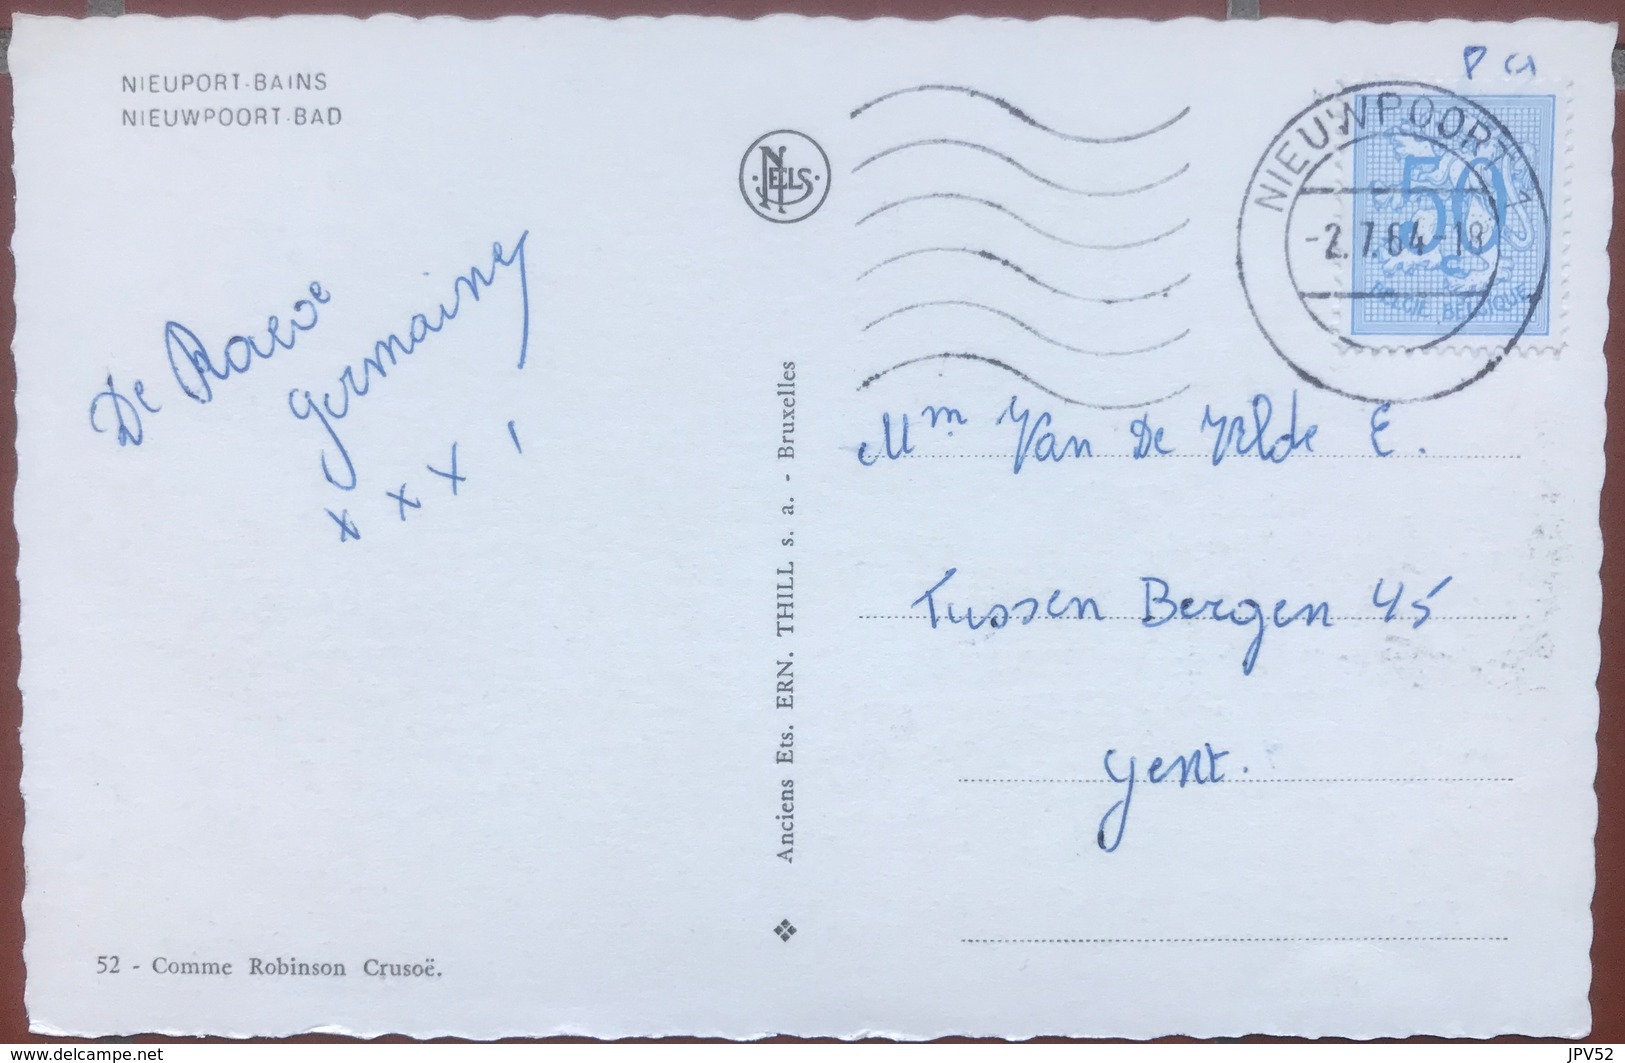 NIEUPORT-BAINS
NIEUWPOORT-BAD
De Raeve
Germaine
x x x 1
52 - Comme Robinson Crusoë.
NELS
Anciens Ets. ERN. THILL s. a. - Bruxelles
NIEUWPOORT 1
-2.7.64-18
50 c
BELGIE BELGIQUE
Mm Van De Velde E.
Tussen Bergen 45
Gent.
www.delcampe.net
JPV52